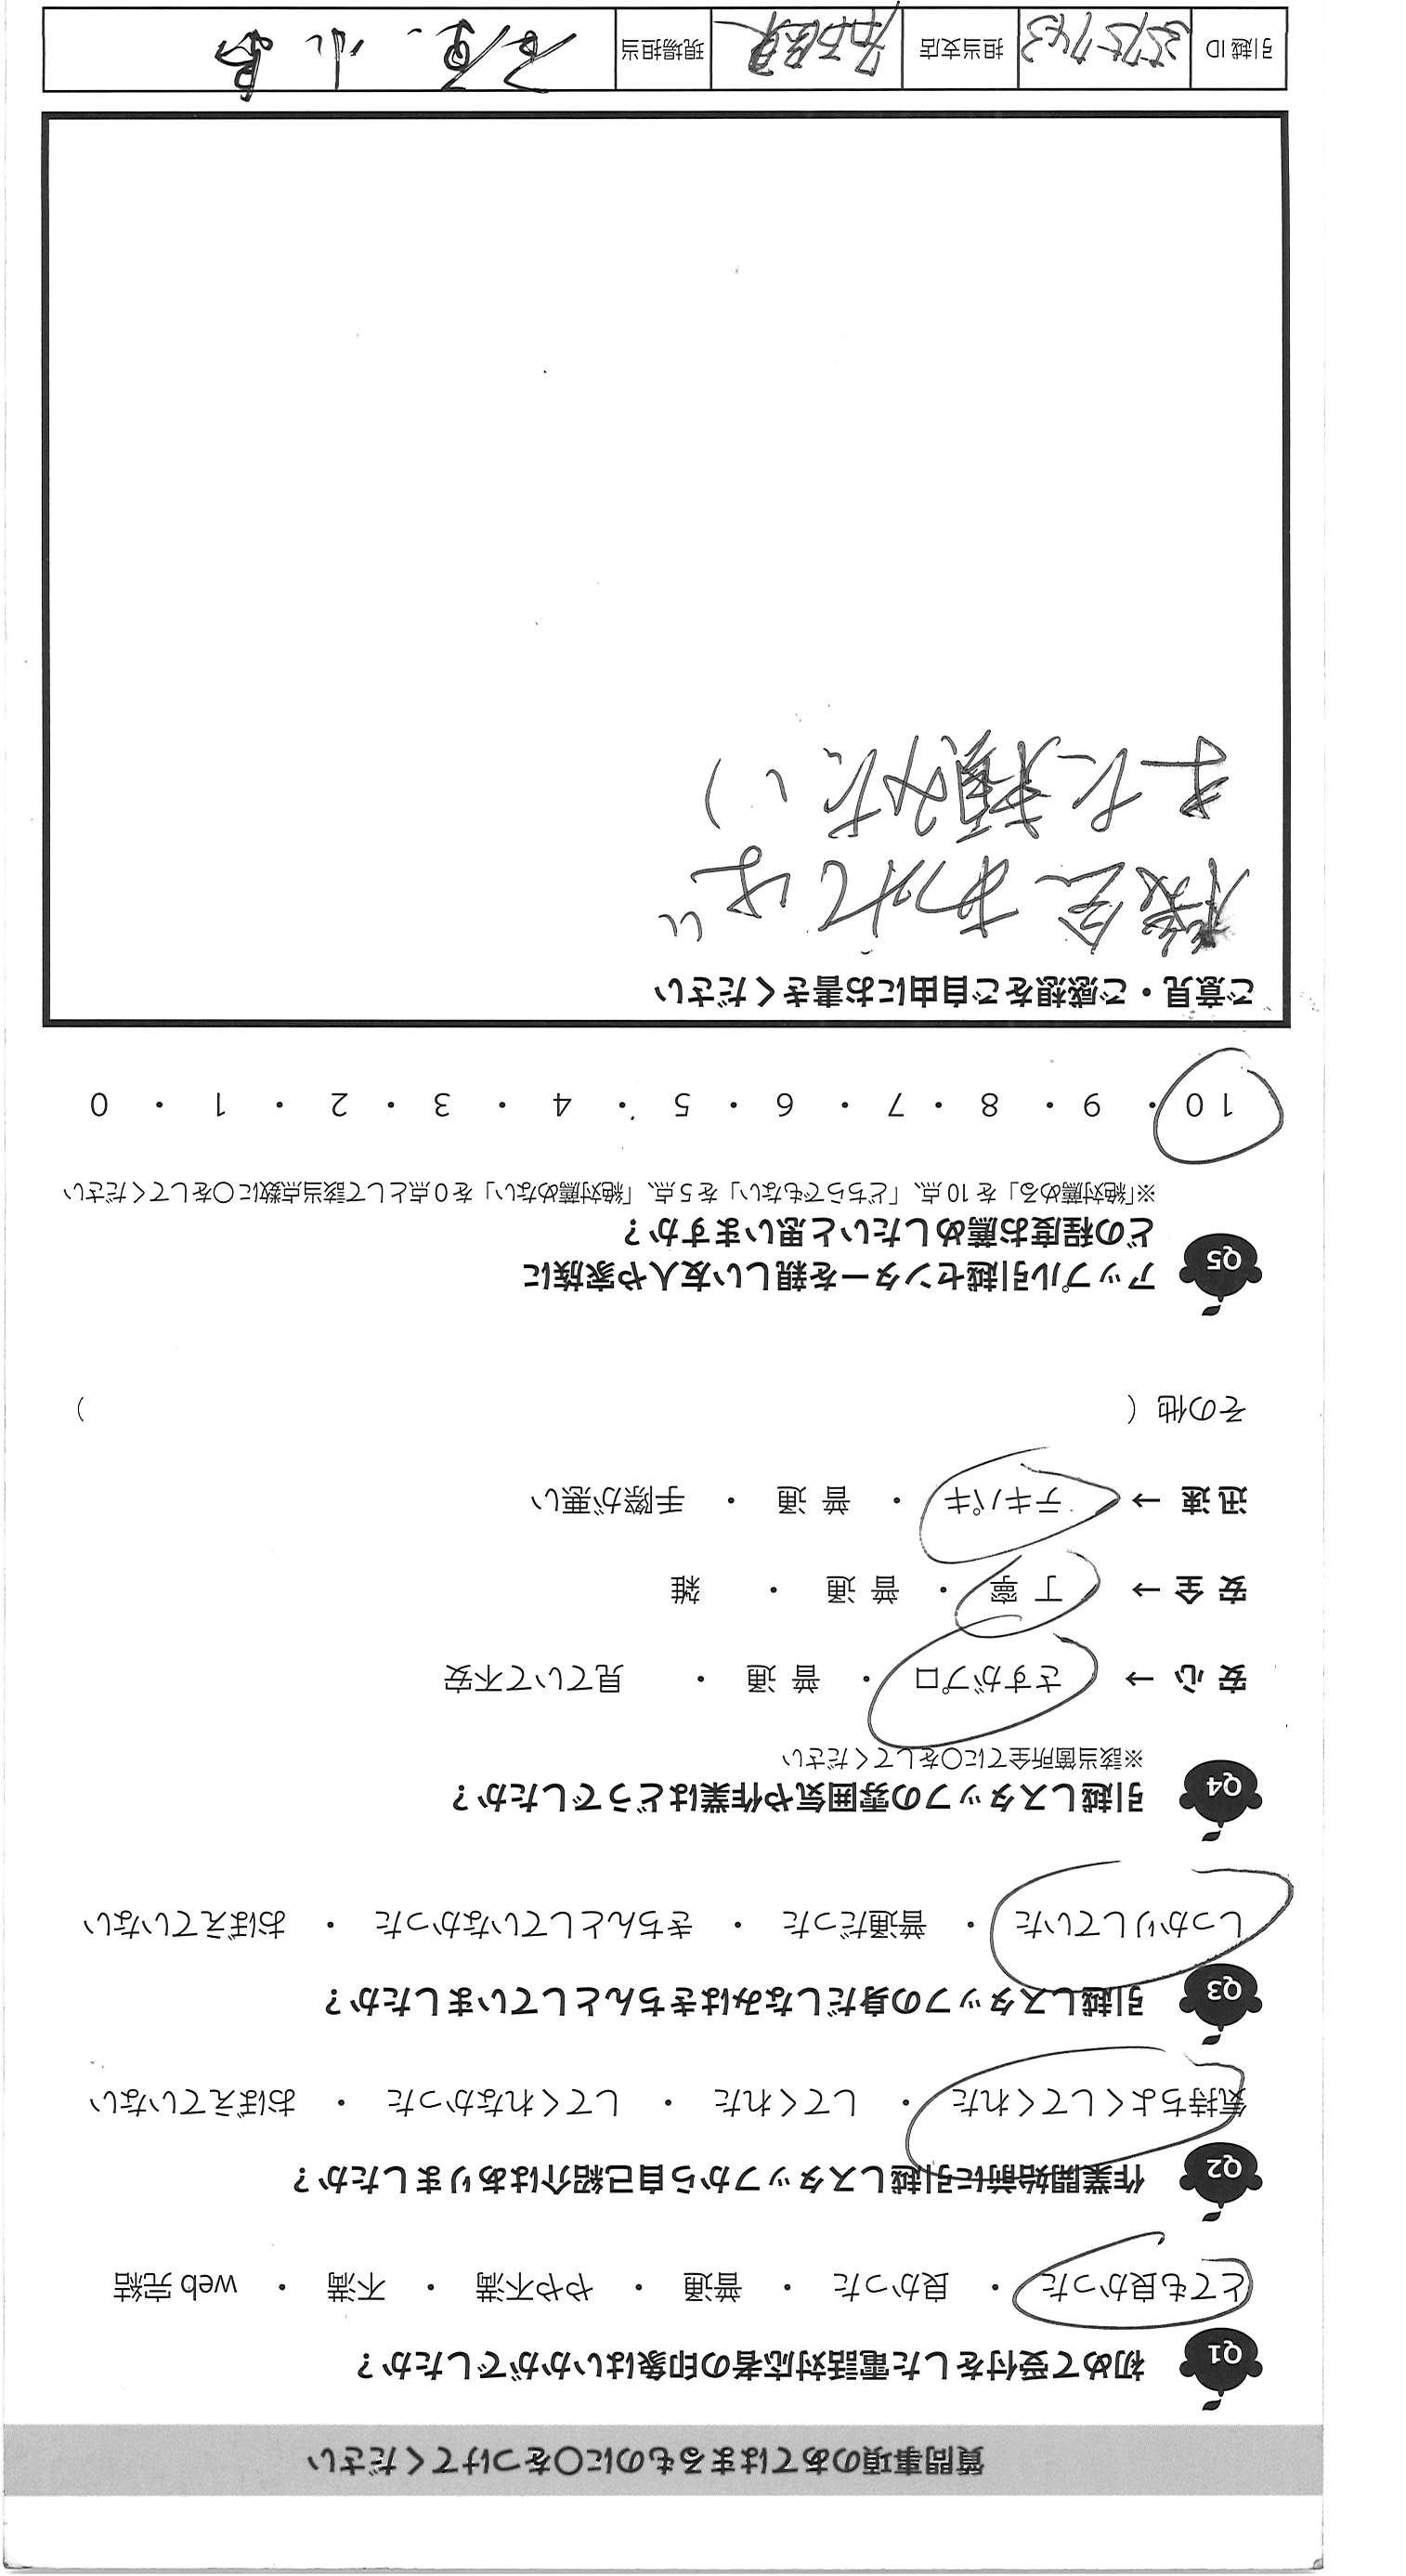 質問事項のあてはまるものに〇をつけてください
Q1 初めて受付をした電話対応者の印象はいかがでしたか？
とても良かった ・ 良かった ・ 普通 ・ やや不満 ・ 不満 ・ web 完結
Q2 作業開始前に引越しスタッフから自己紹介はありましたか？
気持ちよくしてくれた ・ してくれた ・ してくれなかった ・ おぼえていない
Q3 引越しスタッフの身だしなみはきちんとしていましたか？
しっかりしていた ・ 普通だった ・ きちんとしていなかった ・ おぼえていない
Q4 引越しスタッフの雰囲気や作業はどうでしたか？
※該当箇所全てに〇をしてください
安 心 → さすがプロ ・ 普 通 ・ 見ていて不安
安 全 → 丁 寧 ・ 普 通 ・ 雑
迅 速 → テキパキ ・ 普 通 ・ 手際が悪い
その他 （ ）
Q5 アップル引越センターを親しい友人や家族に
どの程度お薦めしたいと思いますか？
※「絶対薦める」を 10 点、「どちらでもない」を 5 点、「絶対薦めない」を 0 点として該当点数に〇をしてください
10 ・ 9 ・ 8 ・ 7 ・ 6 ・ 5 ・ 4 ・ 3 ・ 2 ・ 1 ・ 0
ご意見・ご感想をご自由にお書きください
機会あれば
また頼みたい
引越 ID 担当支店 名古屋 現場担当